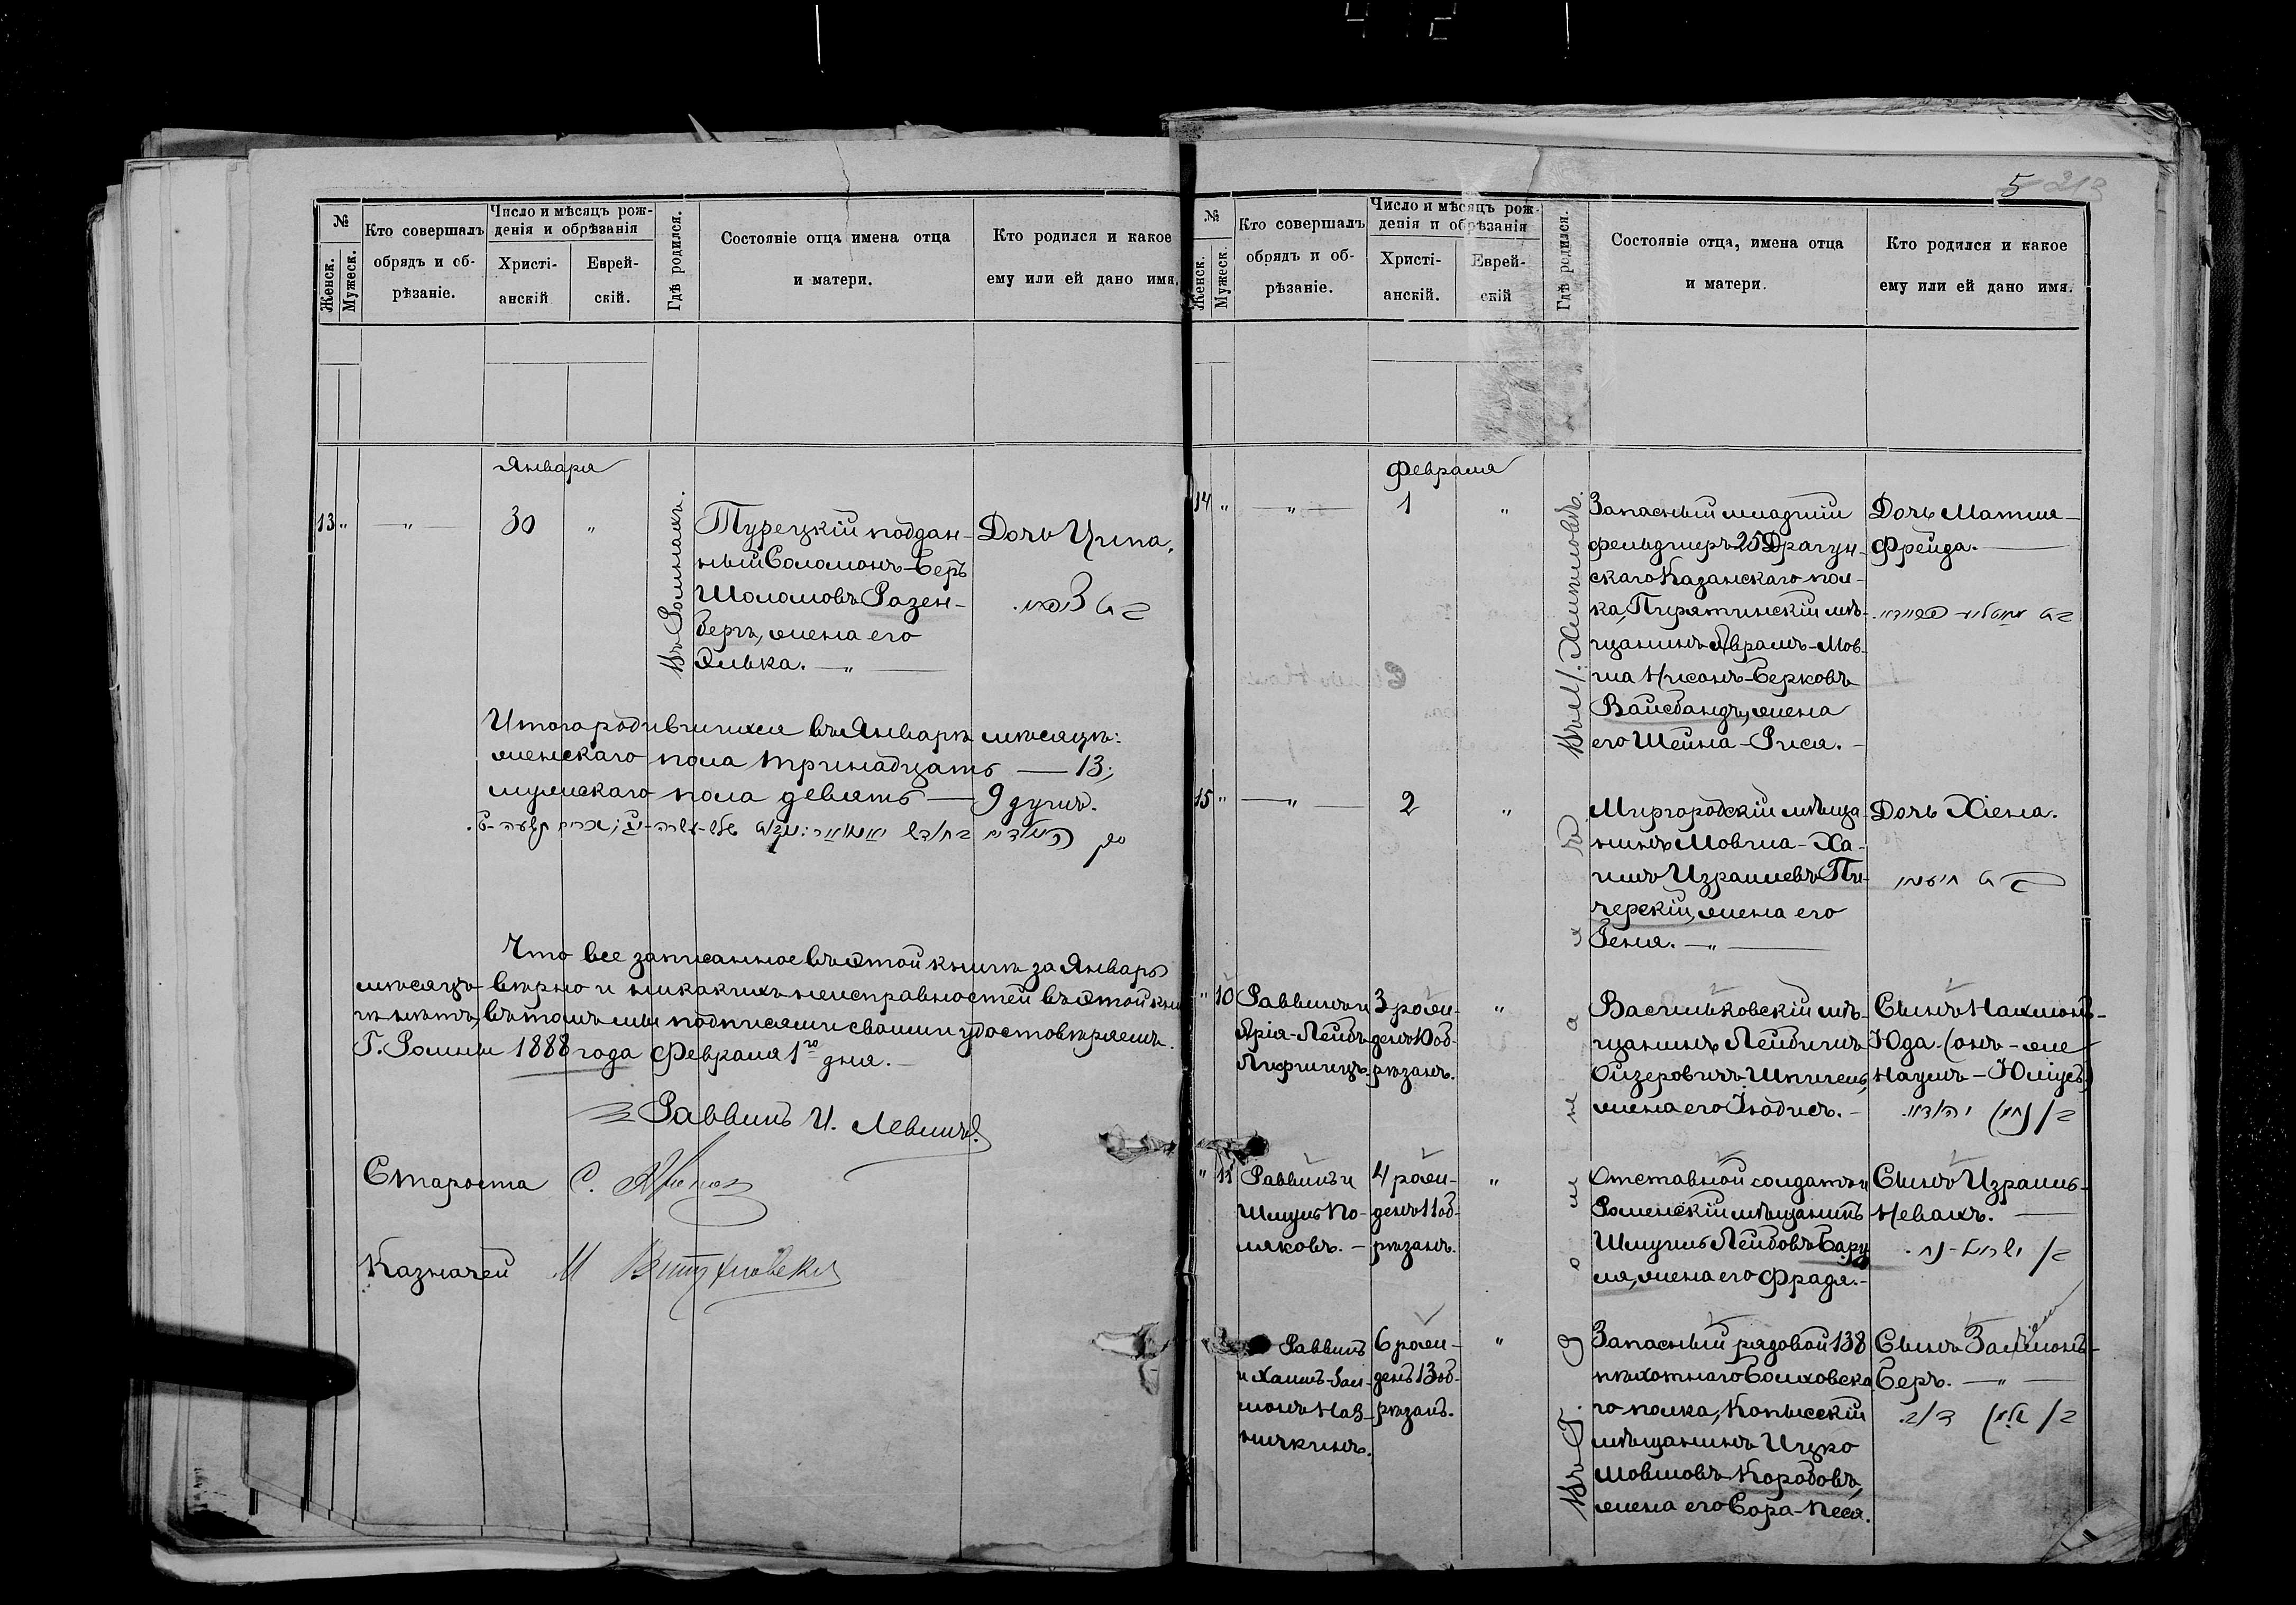 412
№
Женск.
Мужеск.
Кто совершалъ
обрядъ и об-
рѣзаніе.
Число и мѣсяцъ рож-
денія и обрѣзанія
Христі-
анскій
Еврей-
скій.
Гдѣ родился.
Состояніе отца имена отца
и матери.
Кто родился и какое
ему или ей дано имя.
Января
13 " — " — 30 "
Въ Ромнахъ.
Турецкій поддан-
ный Соломонъ-Беръ
Шоломовъ Розен-
бергъ, жена его
Элька. — " —
Дочь Ципа.
בת ציפא.
Итого родившихся въ Январѣ мѣсяцѣ:
женскаго пола тринадцать — 13;
мужескаго пола девять — 9 душъ.
Что все записанное въ этой книгѣ за Январь
мѣсяцъ вѣрно и никакихъ неисправностей въ этой кни
гѣ нѣтъ, въ томъ мы подписями своими удостовѣряемъ.
Г. Ромны 1888 года Февраля 1го дня. —
Раввинъ И. Левинъ
Староста С.
Казначей М
5 213
№
Женск.
Мужеск.
Кто совершалъ
обрядъ и об-
рѣзаніе.
Число и мѣсяцъ рож-
денія и обрѣзанія
Христі-
анскій.
Еврей-
скій
Гдѣ родился.
Состояніе отца, имена отца
и матери.
Кто родился и какое
ему или ей дано имя.
Февраля
14 " — " — 1 "
Въ М. Хмѣловѣ.
Запасный младшій
фельдшеръ 25 Драгун-
скаго Казанскаго пол-
ка, Пирятинскій мѣ-
щанинъ Абрамъ-Мов-
ша Нисонъ-Берковъ
Вайсбандъ, жена
его Шейна-Рися. —
Дочь Матля-
Фрейда. —
15 " — " — 2 "
Миргородскій мѣща-
нинъ Мовша-Ха-
имъ Израилевъ Пи-
черскій, жена его
Геня. — " —
Дочь Хіена.
" 10
Раввинъ и
Арія-Лейбъ
Лифшицъ.
3 рож-
денъ 10 об-
рѣзанъ.
"
Васильковскій мѣ-
щанинъ Лейбишъ
Ойзеровичъ Шпигель,
жена его Іюдисъ. —
Сынъ Нахмонъ-
Юда (онъ-же
Наумъ-Юліусъ)
בן נחמן יהודא.
" 11
Раввинъ и
Шмуль По-
ляковъ. —
4 рож-
денъ 11 об-
рѣзанъ.
"
Отставной солдатъ и
Роменскій мѣщанинъ
Шмуиль Лейбовъ Бару
ля, жена его Фрадя. —
Сынъ Израиль-
Невахъ. —
בן ישראל-נח.
Раввинъ
и Хаимъ-Зал-
монъ Нав-
ничкинъ.
6 рож-
денъ 13 об-
рѣзанъ.
"
Запасный рядовой 138
пѣхотнаго Болховска
го полка, Копысскій
мѣщанинъ Ицко
Мовшовъ Коробовъ,
жена его Сора-Песя.
Сынъ Залмонъ-
Беръ. — " —
בן זלמן בער.
Въ Г. Ромнахъ